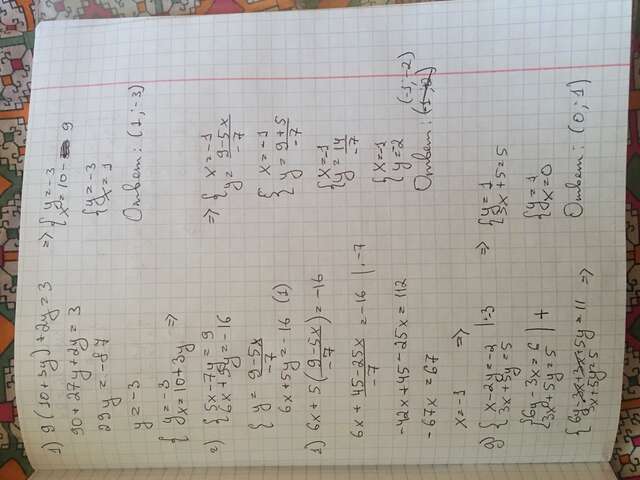 1) 9(10+3y)+2y=3
90+27y+2y=3
29y=-87
y=-3
{ y=-3
x=10+3y =>
=> { y=-3
x=10-9
{ y=-3
x=1
Ответ: (1;-3)
2) { 5x-7y=9
6x+5y=-16
{ y= 9-5x/-7
6x+5y=-16 (1)
1) 6x+5(9-5x/-7)=-16
6x+ 45-25x/-7 =-16 |·-7
-42x+45-25x=112
-67x=67
x=-1 =>
=> { x=-1
y= 9-5x/-7
{ x=-1
y= 9+5/-7
{ x=-1
y= 14/-7
{ x=-1
y=-2
Ответ: (-1;-2)
{ x-2y=-2 |·-3
3x+5y=5
{ 6y-3x=6 | +
3x+5y=5
{ 6y-3x+3x+5y=11 =>
3x+5y=5
=> { y=1
3x+5=5
{ y=1
x=0
Ответ: (0;1)